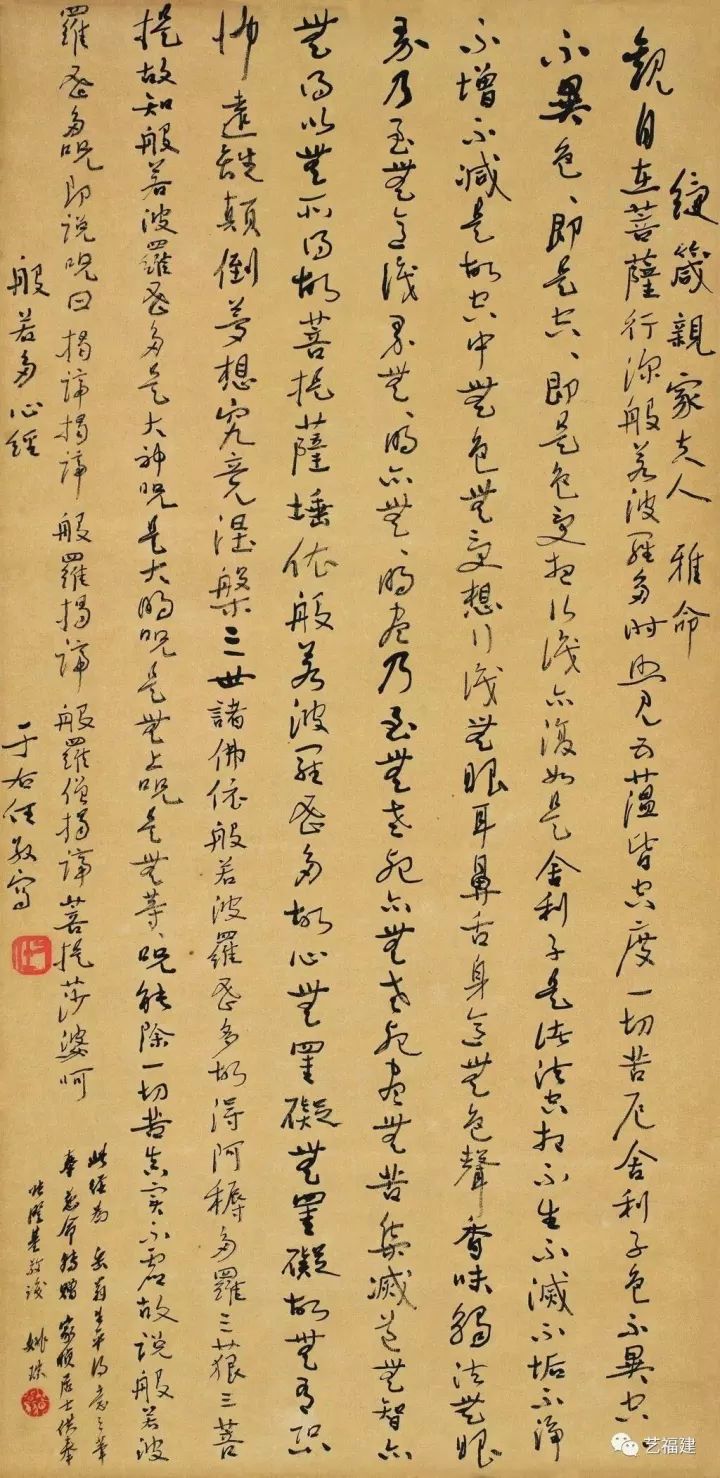 箴親家夫人 雅命
觀自在菩薩行深般若波羅多時照見五薀皆空度一切苦厄舍利子色不異空
不異色、即是空、即是色受想行識亦復如是舍利子是諸法空相不生不滅不垢不淨
不增不減是故空中無色無受想行識無眼耳鼻舌身意無色聲香味觸法無眼
界乃至無意識界無、明亦無、明盡乃至無老死亦無老死盡無苦集滅道無智亦
無得以無所得故菩提薩埵依般若波羅密多故心無罣礙無罣礙故無有恐
怖遠離顛倒夢想究竟涅槃三世諸佛依般若波羅密多故得阿耨多羅三藐三菩
提故知般若波羅密多是大神咒是大明咒是無上咒是無等、咒能除一切苦真實不虛故說般若波
羅密多咒即說咒曰揭諦揭諦般羅揭諦般羅僧揭諦菩提莎婆呵
般若多心經
于右任敬寫
此經為 岳翁生平得意之筆
奉慈命轉贈 家順居士供奉
張澄基敬識
艺福建